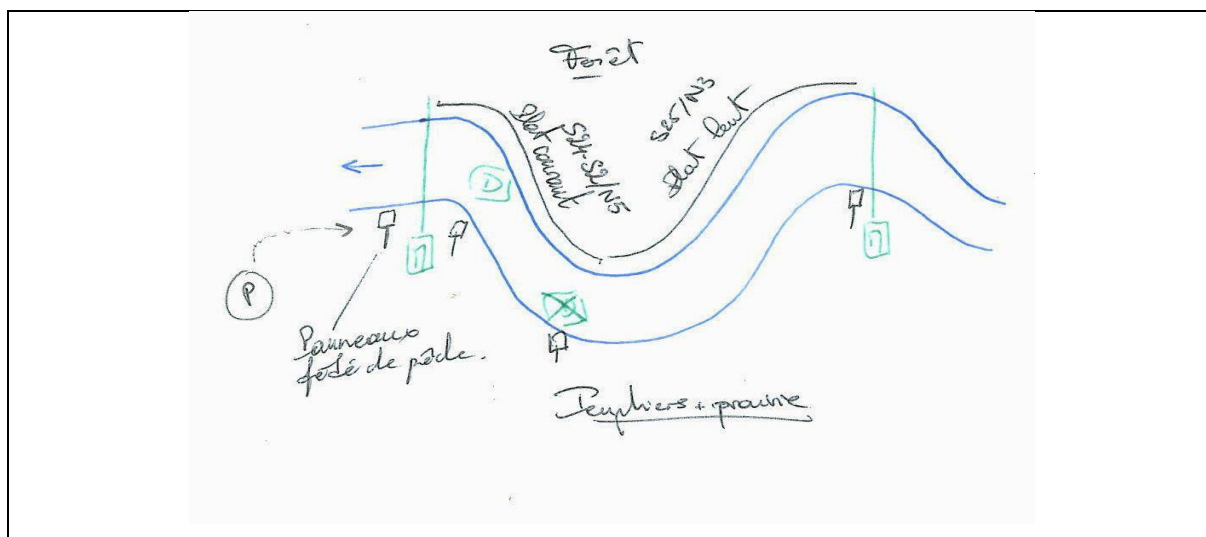 Forêt
S24-S2/N5
Plat courant
S25/N3
Plat lent
D
P
Panneaux
de pêche.
Peupliers + prairie